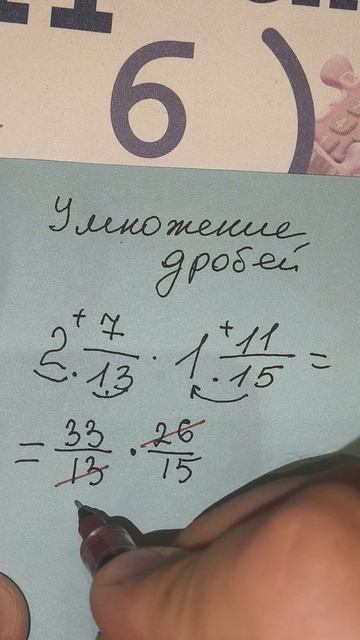 6)
Умножение
дробей
2 + 7/13 · 1 + 11/15 =
= 33/13 · 26/15